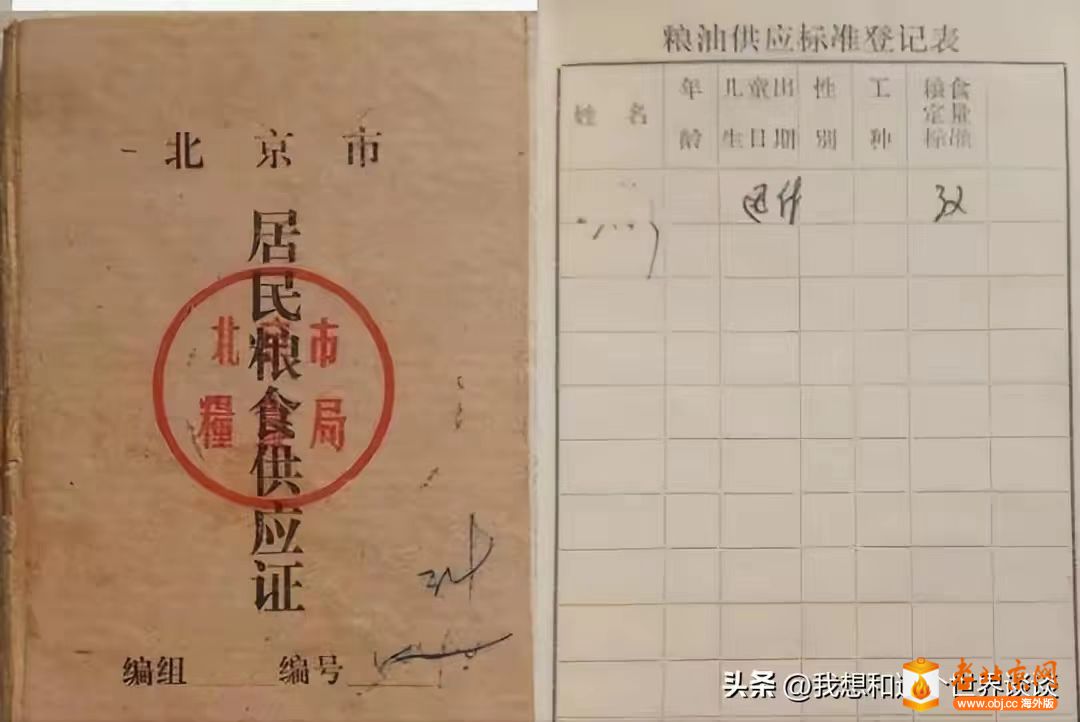 北京市
居民粮食供应证
北京市
糧食局
编组 编号
粮油供应标准登记表
姓名 年龄 儿童出生日期 性别 工种 粮食定量标准
头条 @我想和这个世界谈谈
老北京网
www.obj.cc 海外版